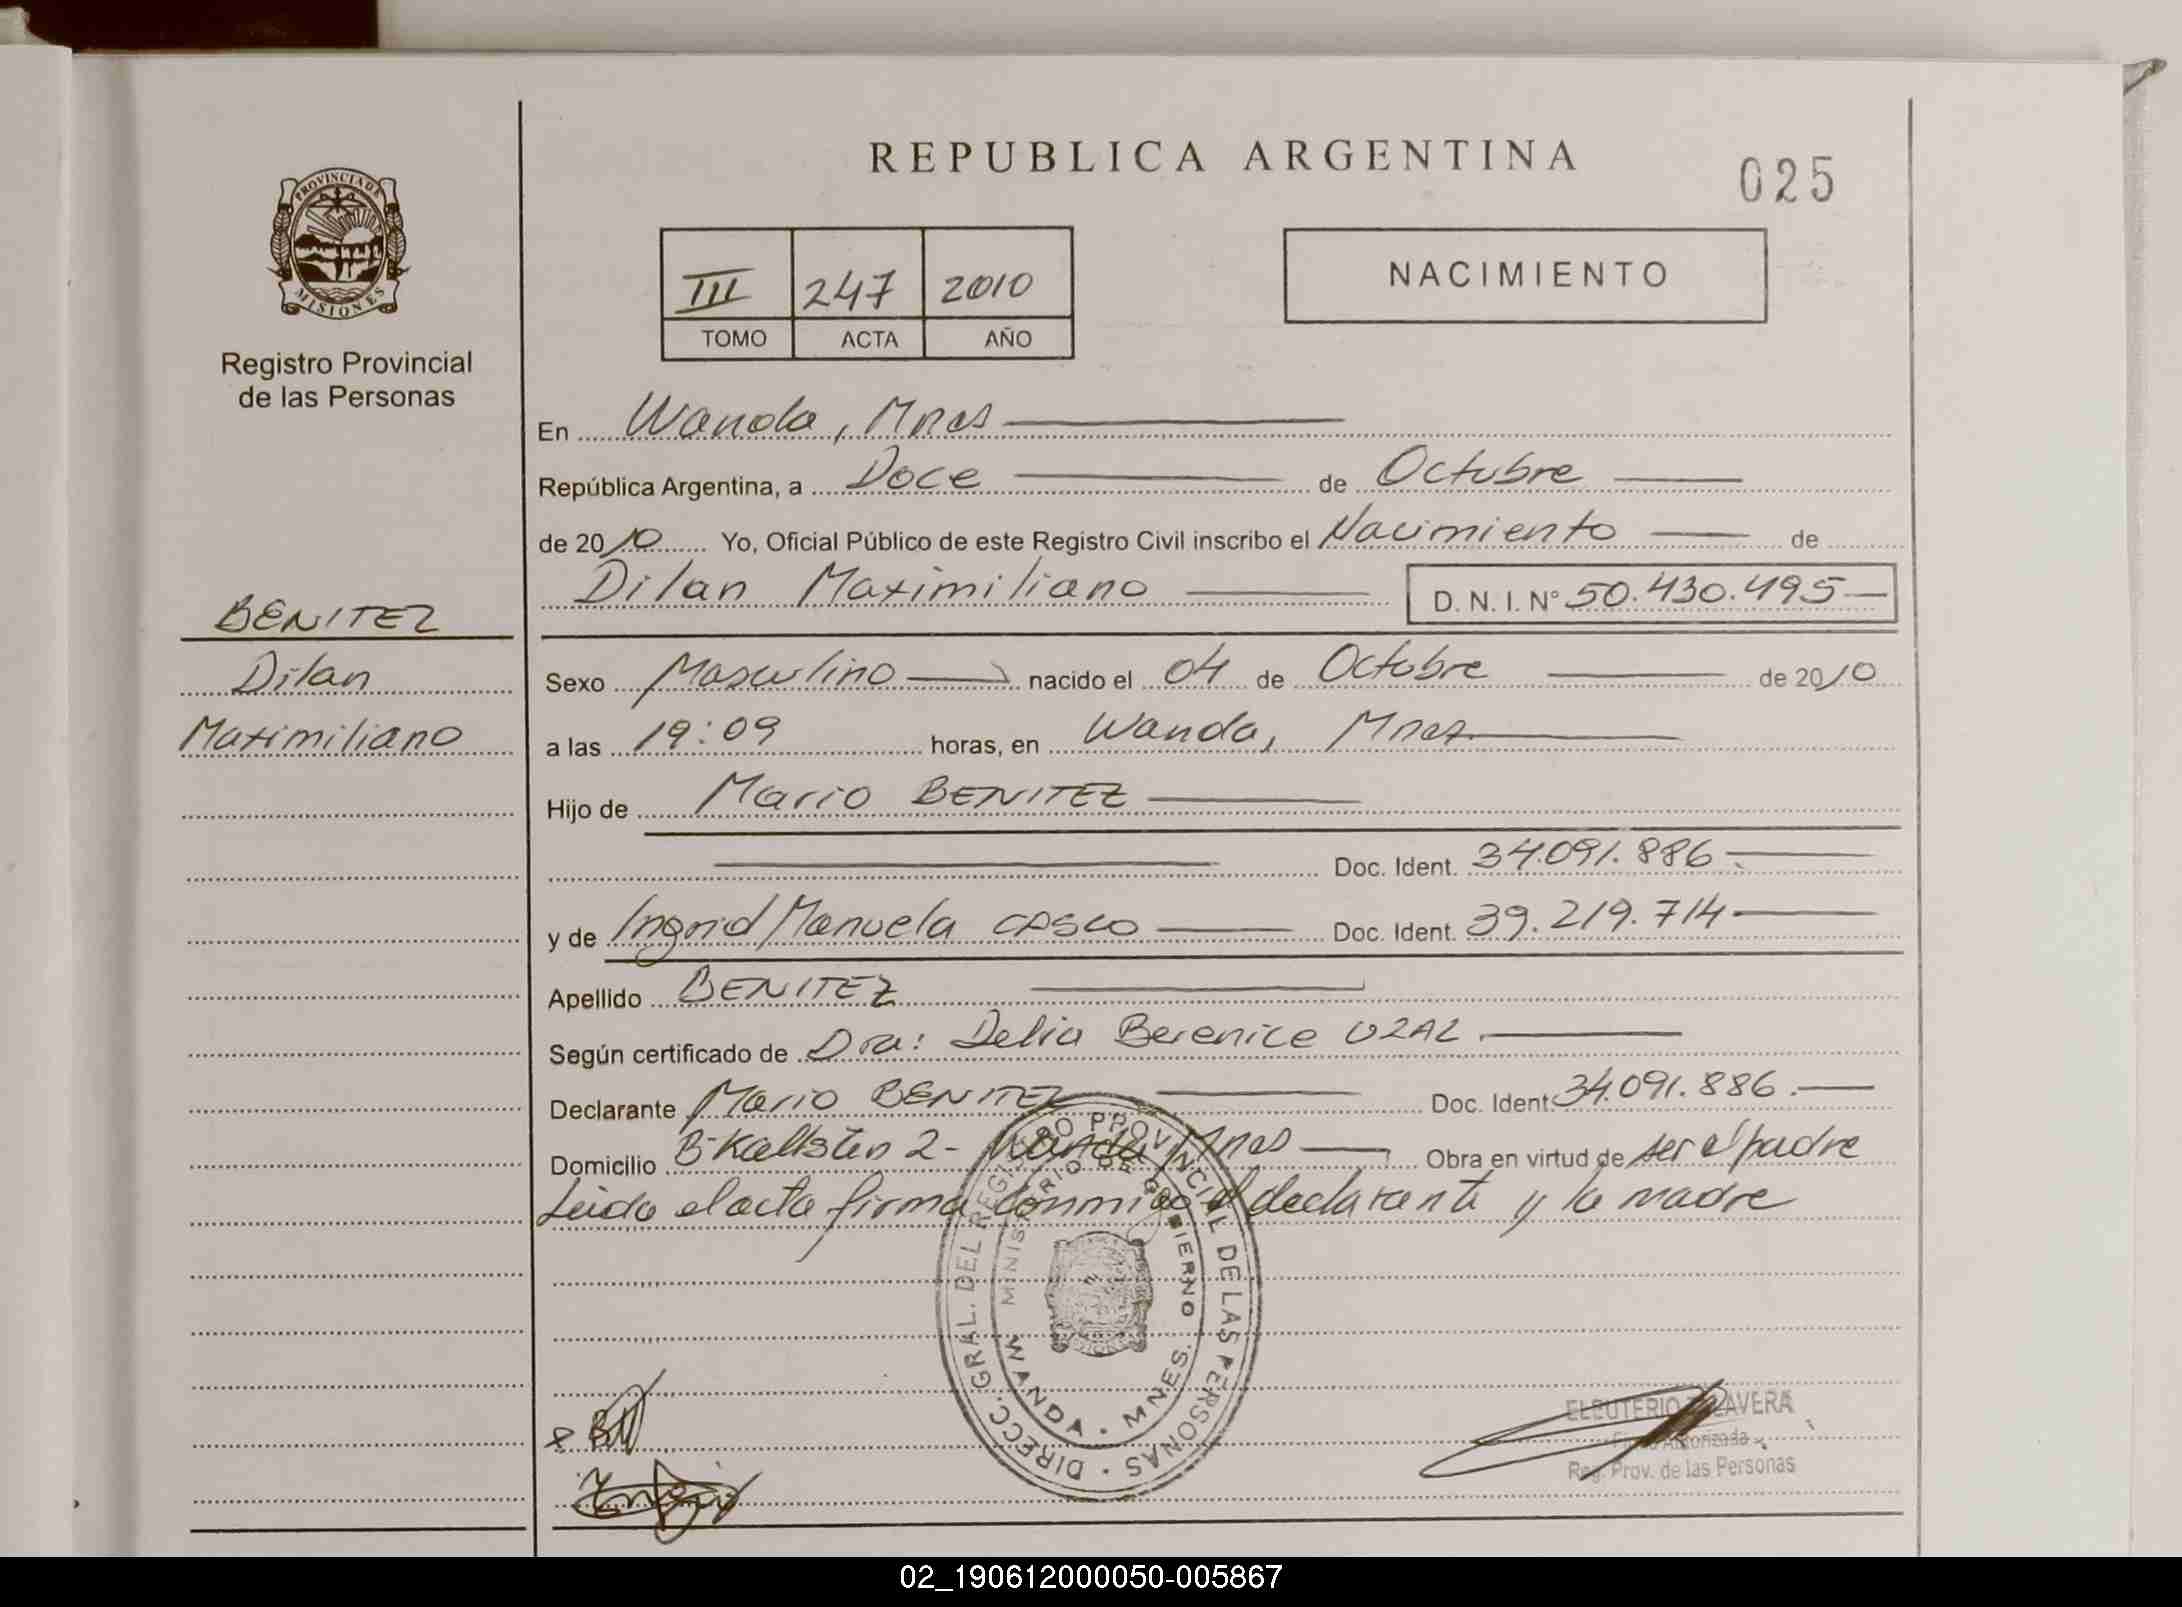 REPUBLICA ARGENTINA
025
PROVINCIA DE
MISIONES
Registro Provincial
de las Personas
III 247 2010
TOMO ACTA AÑO
NACIMIENTO
En Wanda, Mnes
República Argentina, a Doce de Octubre
de 2010 Yo, Oficial Público de este Registro Civil inscribo el Nacimiento de
Dilan Maximiliano D. N. I. N° 50.430.495
BENITEZ
Dilan
Maximiliano
Sexo Masculino nacido el 04 de Octubre de 2010
a las 19:09 horas, en Wanda, Mnes
Hijo de Mario BENITEZ
Doc. Ident. 34.091.886
y de Ingrid Manuela CASCO Doc. Ident. 39.219.714
Apellido BENITEZ
Según certificado de Dra: Delia Berenice
Declarante Mario BENITEZ Doc. Ident. 34.091.886.
Domicilio 2- Wanda, Mnes Obra en virtud de ser el padre
Leida el acta firma conmigo el declarante y la madre
DIRECC. GRAL. DEL REGISTRO PROVINCIAL DE LAS PERSONAS
MINISTERIO DE GOBIERNO
WANDA - MNES.
ELEUTERIO TALAVERA
Firma Autorizada
Reg. Prov. de las Personas
02_190612000050-005867